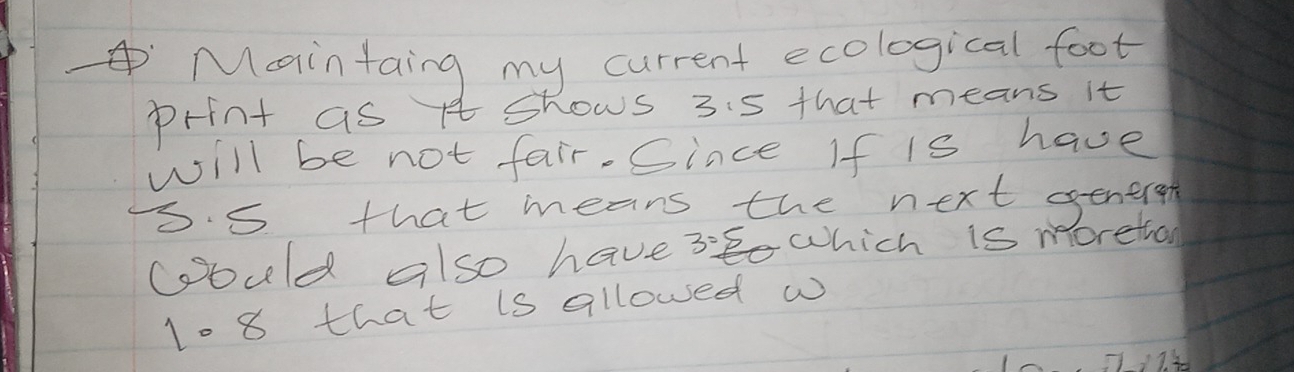 Maintaing my current ecological foot
print as it shows 3.5 that means it
will be not fair. Since if is have
3.5 that means the next generat
would also have 3.5 which is morethan
1.8 that is allowed w